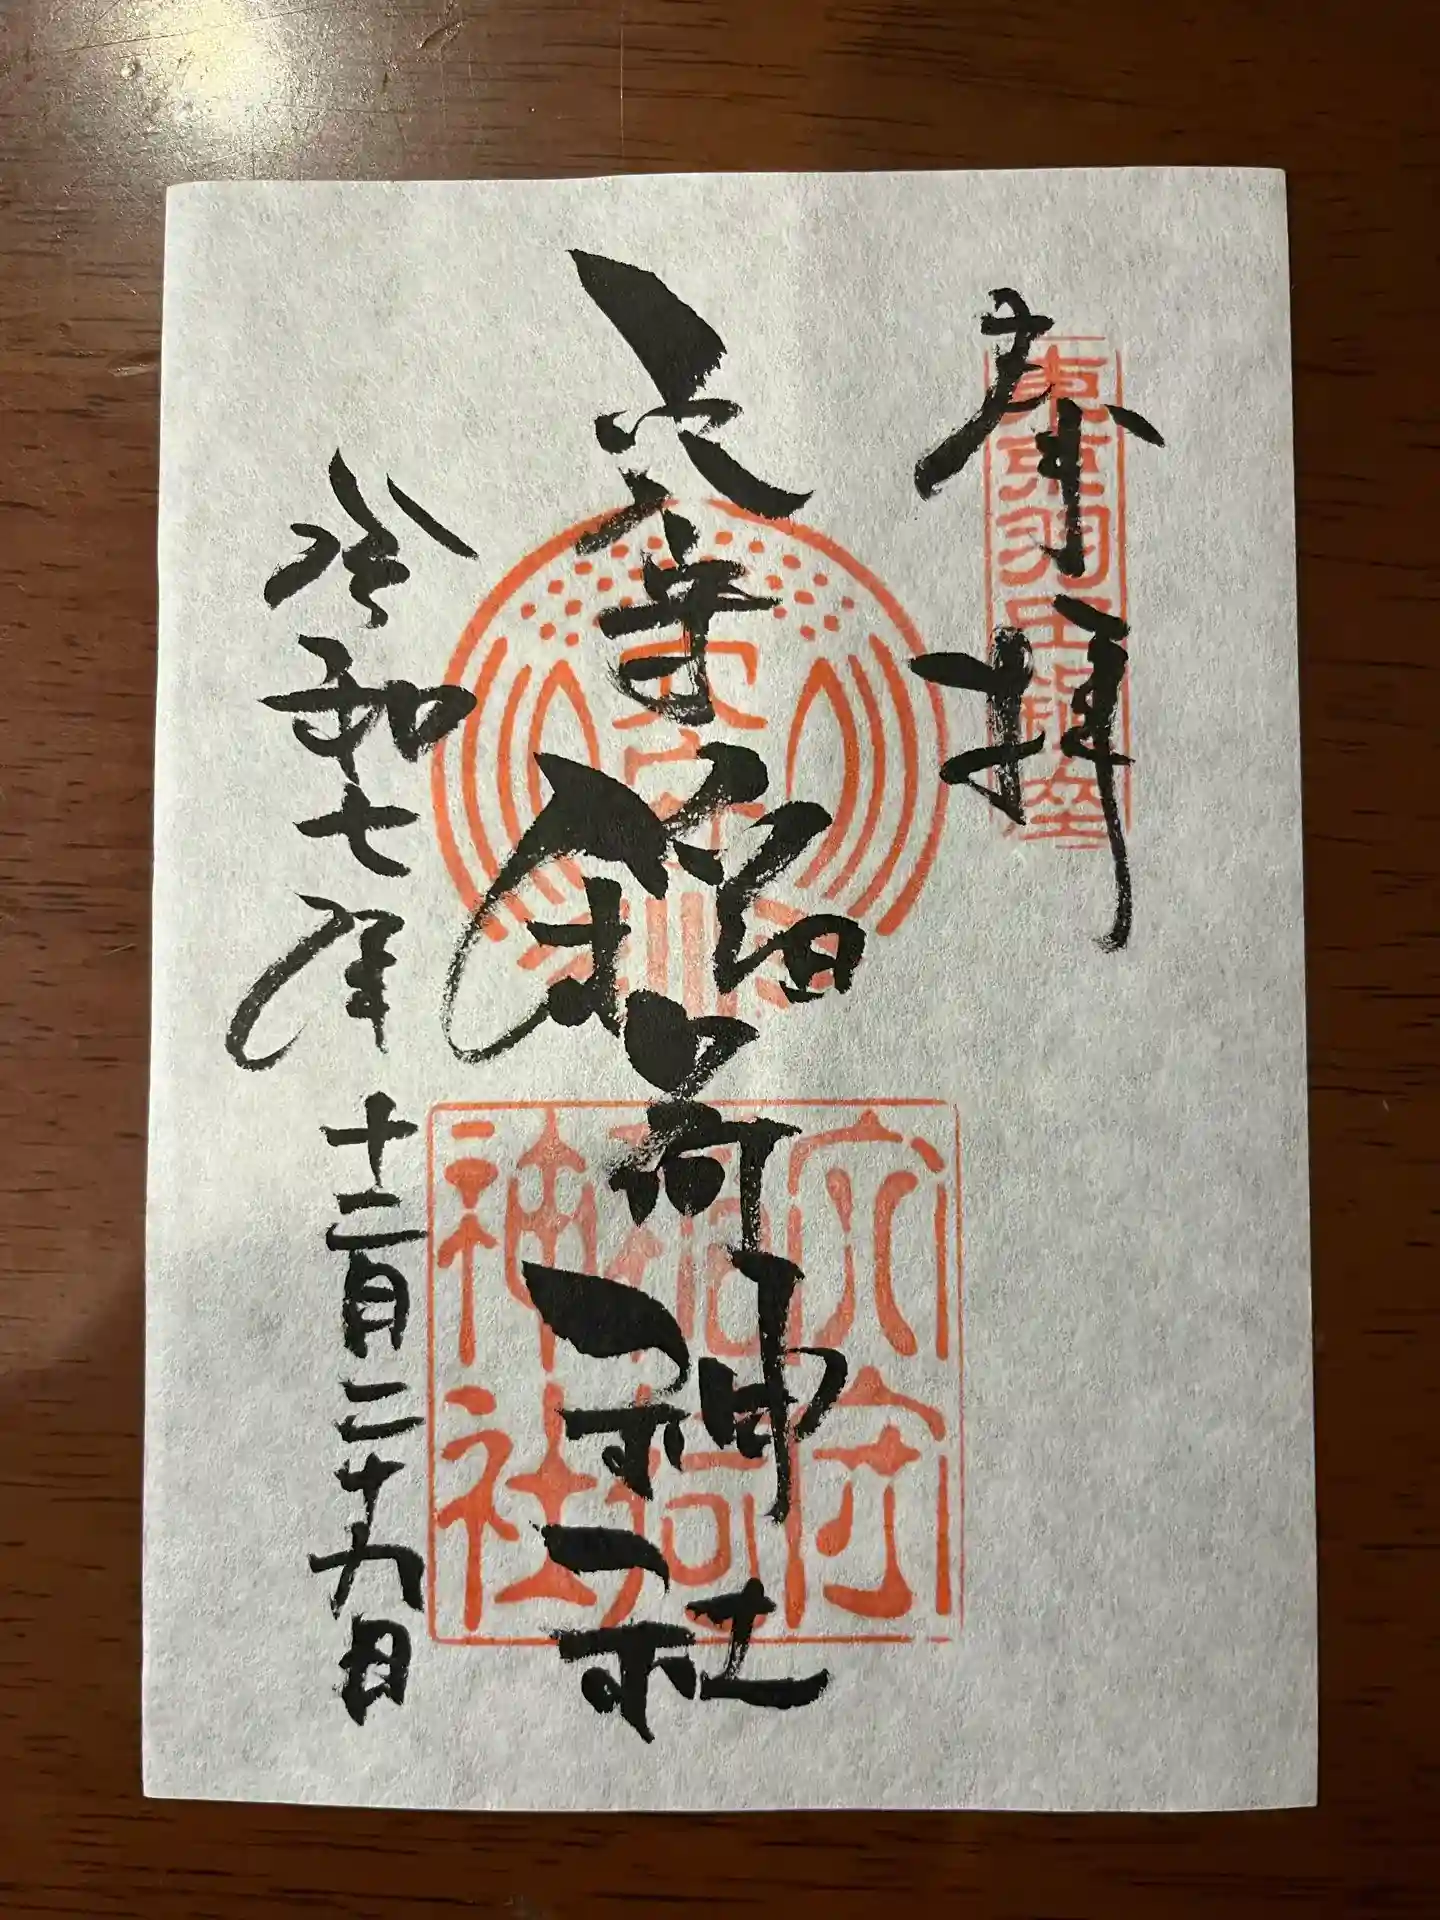 奉拝
東京羽田鎮座
穴守稲荷神社
穴守
穴守
稲荷
神社
令和七年十二月二十九日